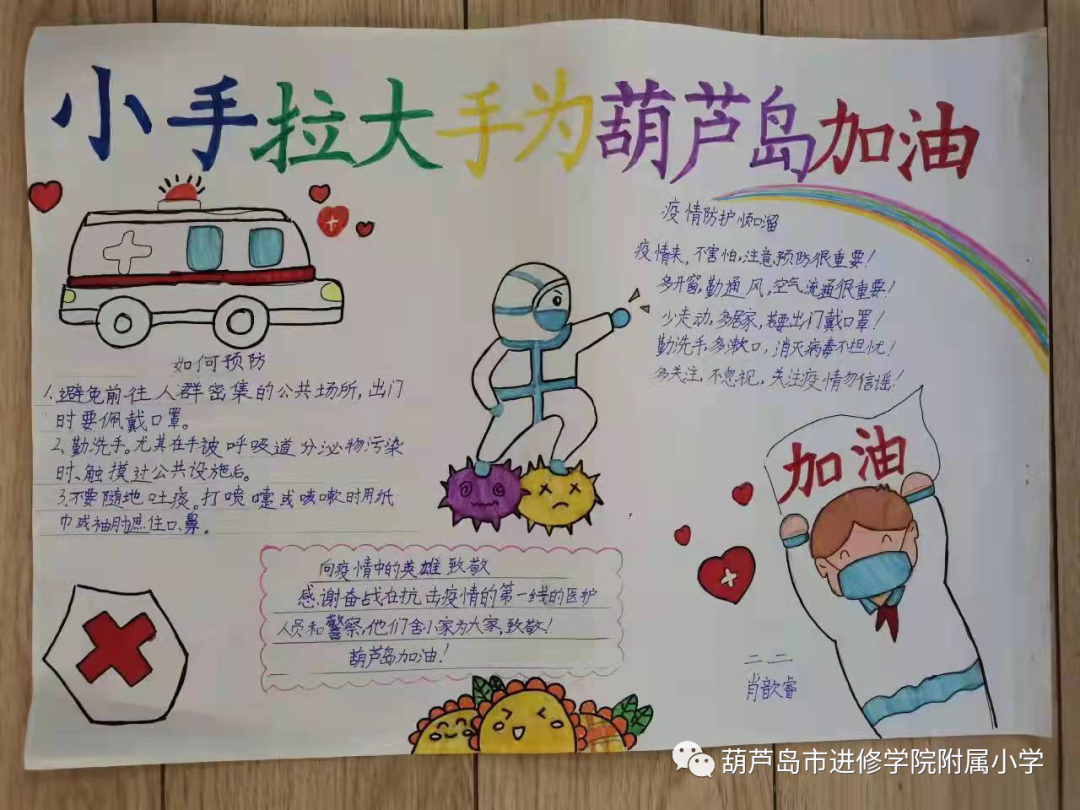 小手拉大手为葫芦岛加油
疫情防护顺口溜
疫情来,不害怕,注意预防很重要!
多开窗,勤通风,空气流通很重要!
少走动,多居家,若要出门戴口罩!
勤洗手,多漱口,消灭病毒不担忧!
多关注,不忽视,关注疫情勿信谣!
如何预防
1.避免前往人群密集的公共场所,出门
时要佩戴口罩。
2.勤洗手。尤其在手被呼吸道分泌物污染
时、触摸过公共设施后。
3.不要随地吐痰。打喷嚏或咳嗽时用纸
巾或袖肘遮住口、鼻。
加油
向疫情中的英雄致敬
感谢奋战在抗击疫情的第一线的医护
人员和警察,他们舍小家为大家,致敬!
葫芦岛加油!
二.二
肖歆睿
葫芦岛市进修学院附属小学